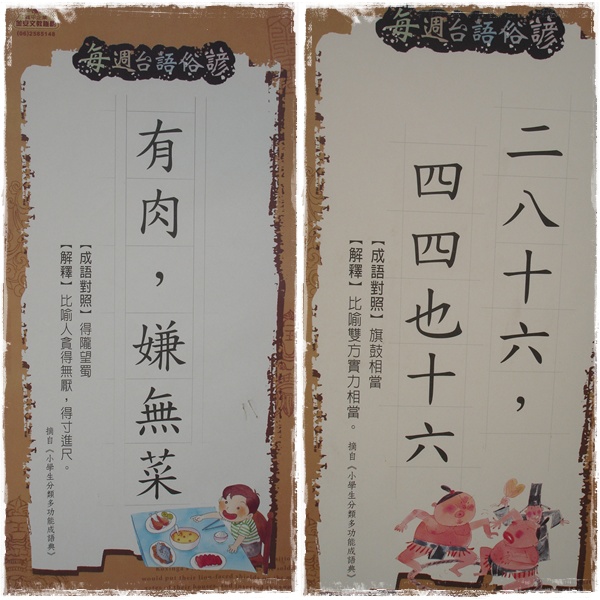 每週台語俗諺
有肉，嫌無菜
【成語對照】得隴望蜀
【解釋】比喻人貪得無厭，得寸進尺。
摘自《小學生分類多功能成語典》
每週台語俗諺
二八十六，
四四也十六
【成語對照】旗鼓相當
【解釋】比喻雙方實力相當。
摘自《小學生分類多功能成語典》